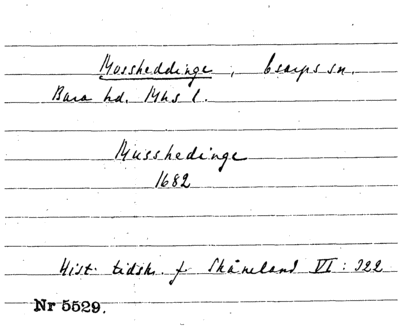 Mossheddinge, Esarps sn.
Bara hd. Mhs l.
Musshedinge
1682
Hist. tidsk. f Skåneland VI: 322
Nr 5529.